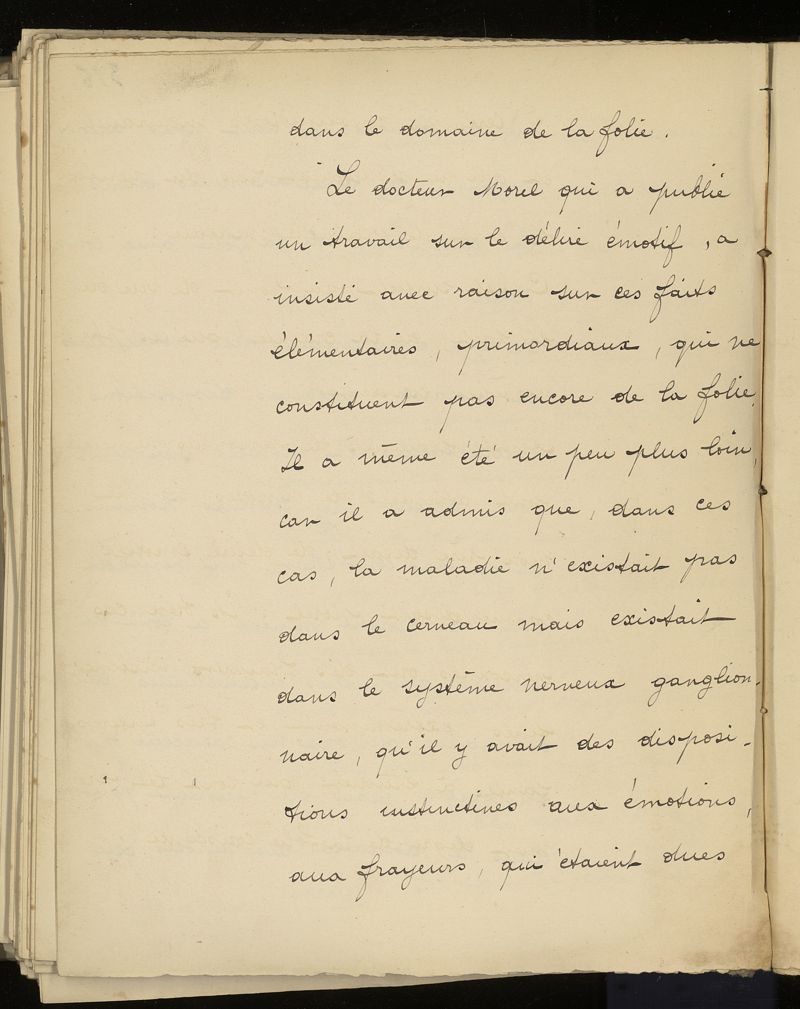 dans le domaine de la folie.
Le docteur Morel qui a publié
un travail sur le délire émotif, a
insisté avec raison sur ces faits
élémentaires, primordiaux, qui ne
constituent pas encore de la folie.
Il a même été un peu plus loin,
car il a admis que, dans ces
cas, la maladie n'existait pas
dans le cerveau mais existait
dans le système nerveux ganglion-
naire, qu'il y avait des disposi-
tions instinctives aux émotions,
aux frayeurs, qui étaient dues